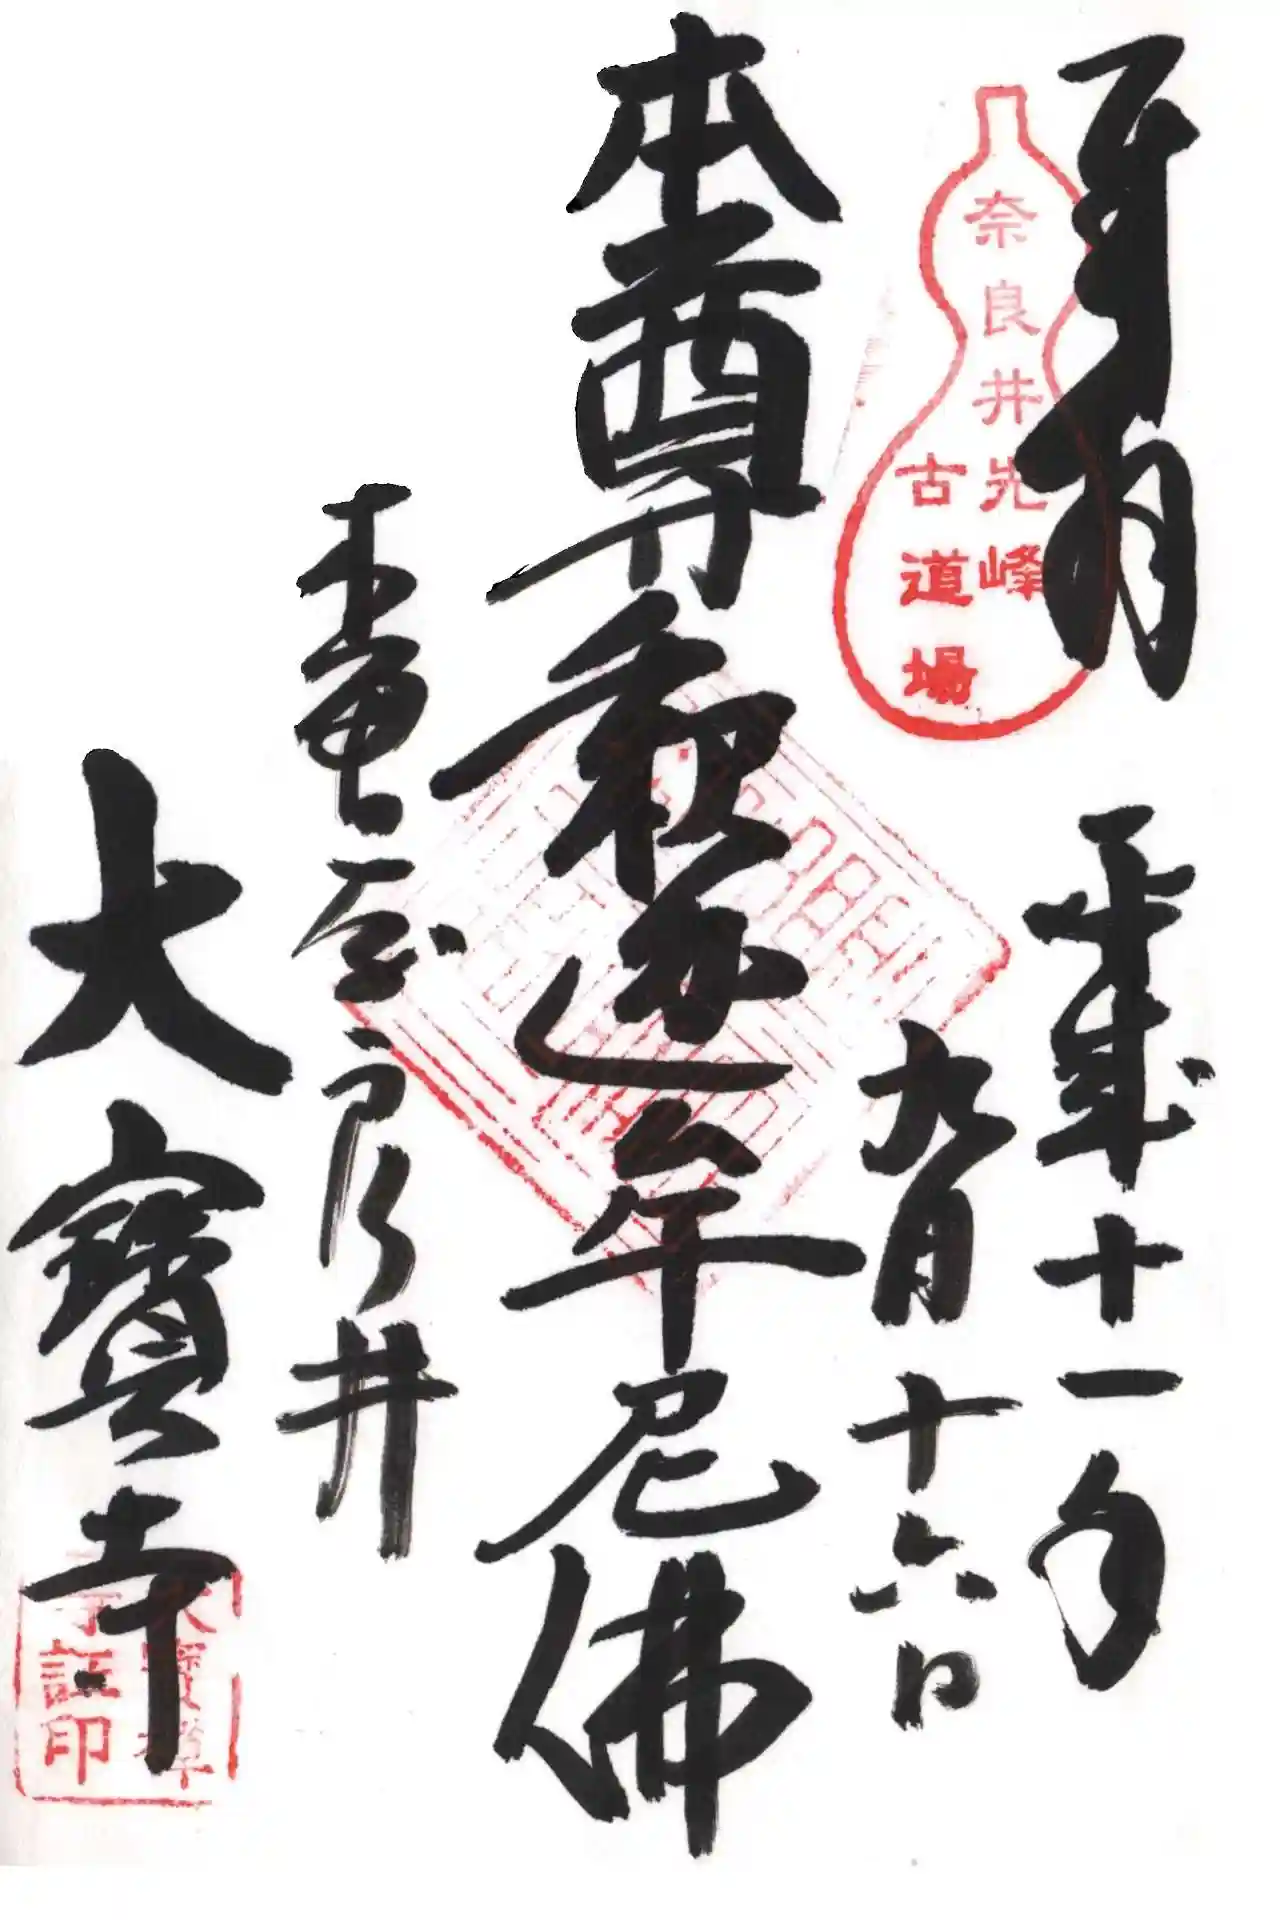 奈良井先峰
古道場
平成十一年
九月十六日
本尊釈迦牟尼佛
木曽奈良井
大寶寺
大寶禅
寺証印